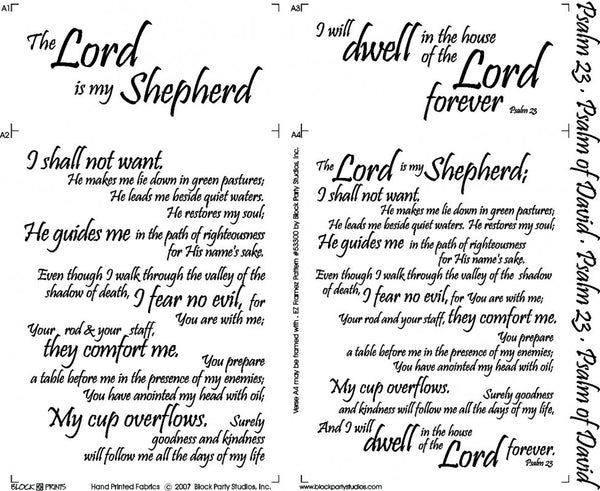 A1
The Lord
is my Shepherd
A3
I will
dwell in the house
of the Lord
forever
Psalm 23
A2
I shall not want.
He makes me lie down in green pastures;
He leads me beside quiet waters.
He restores my soul;
He guides me in the path of righteousness
for His name's sake.
Even though I walk through the valley of the
shadow of death, I fear no evil, for
You are with me;
Your rod & your staff,
they comfort me.
You prepare
a table before me in the presence of my enemies;
You have anointed my head with oil;
My cup overflows. Surely
goodness and kindness
will follow me all the days of my life,
A4
The Lord is my Shepherd;
I shall not want.
He makes me lie down in green pastures;
He leads me beside quiet waters. He restores my soul;
He guides me in the path of righteousness
for His name's sake.
Even though I walk through the valley of the shadow
of death, I fear no evil, for You are with me;
Your rod and your staff, they comfort me.
You prepare
a table before me in the presence of my enemies;
You have anointed my head with oil;
My cup overflows. Surely goodness
and kindness will follow me all the days of my life,
And I will
dwell in the house
of the Lord forever.
Psalm 23
Verse A4 may be framed with . EZ Framez Pattern #53300 by Block Party Studios, Inc.
Psalm 23 · Psalm of David · Psalm 23 · Psalm of David
BLOCK PRINTS
Hand Printed Fabrics © 2007 Block Party Studios, Inc.
www.blockpartystudios.com